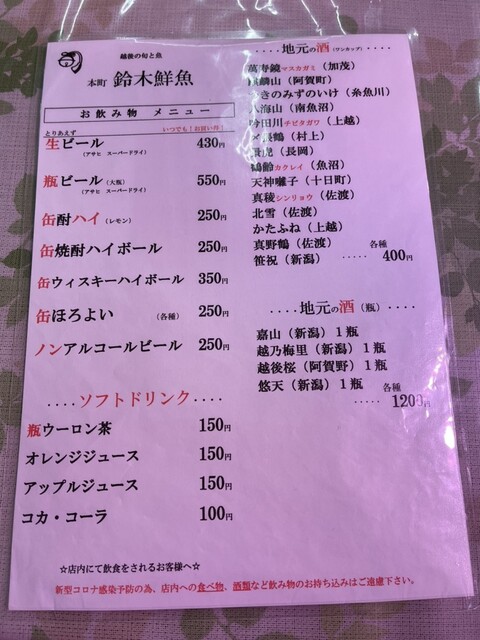 越後の旬と魚
本町 鈴木鮮魚
お飲み物 メニュー
とりあえず
いつでも!お買い得!
生ビール 430円
(アサヒ スーパードライ)
瓶ビール(大瓶) 550円
(アサヒ スーパードライ)
缶酎ハイ(レモン) 250円
缶焼酎ハイボール 250円
缶ウィスキーハイボール 350円
缶ほろよい (各種) 250円
ノンアルコールビール 250円
....ソフトドリンク....
瓶ウーロン茶 150円
オレンジジュース 150円
アップルジュース 150円
コカ・コーラ 100円
.....地元の酒(ワンカップ)....
萬寿鏡マスカガミ(加茂)
麟山(阿賀町)
きのみずのいけ(糸魚川)
海山(南魚沼)
吟田川チビタガワ(上越)
張鶴(村上)
虎(長岡)
鶴齢カクレイ(魚沼)
天神囃子(十日町)
真稜シンリョウ(佐渡)
北雪(佐渡)
かたふね(上越)
真野鶴(佐渡) 各種
笹祝(新潟) ..... 400円
.....地元の酒(瓶)....
嘉山(新潟)1瓶
越乃梅里(新潟)1瓶
越後桜(阿賀野)1瓶
悠天(新潟)1瓶 各種
....1200円
☆店内にて飲食をされるお客様へ☆
新型コロナ感染予防の為、店内への食べ物、酒類など飲み物のお持ち込みはご遠慮下さい。